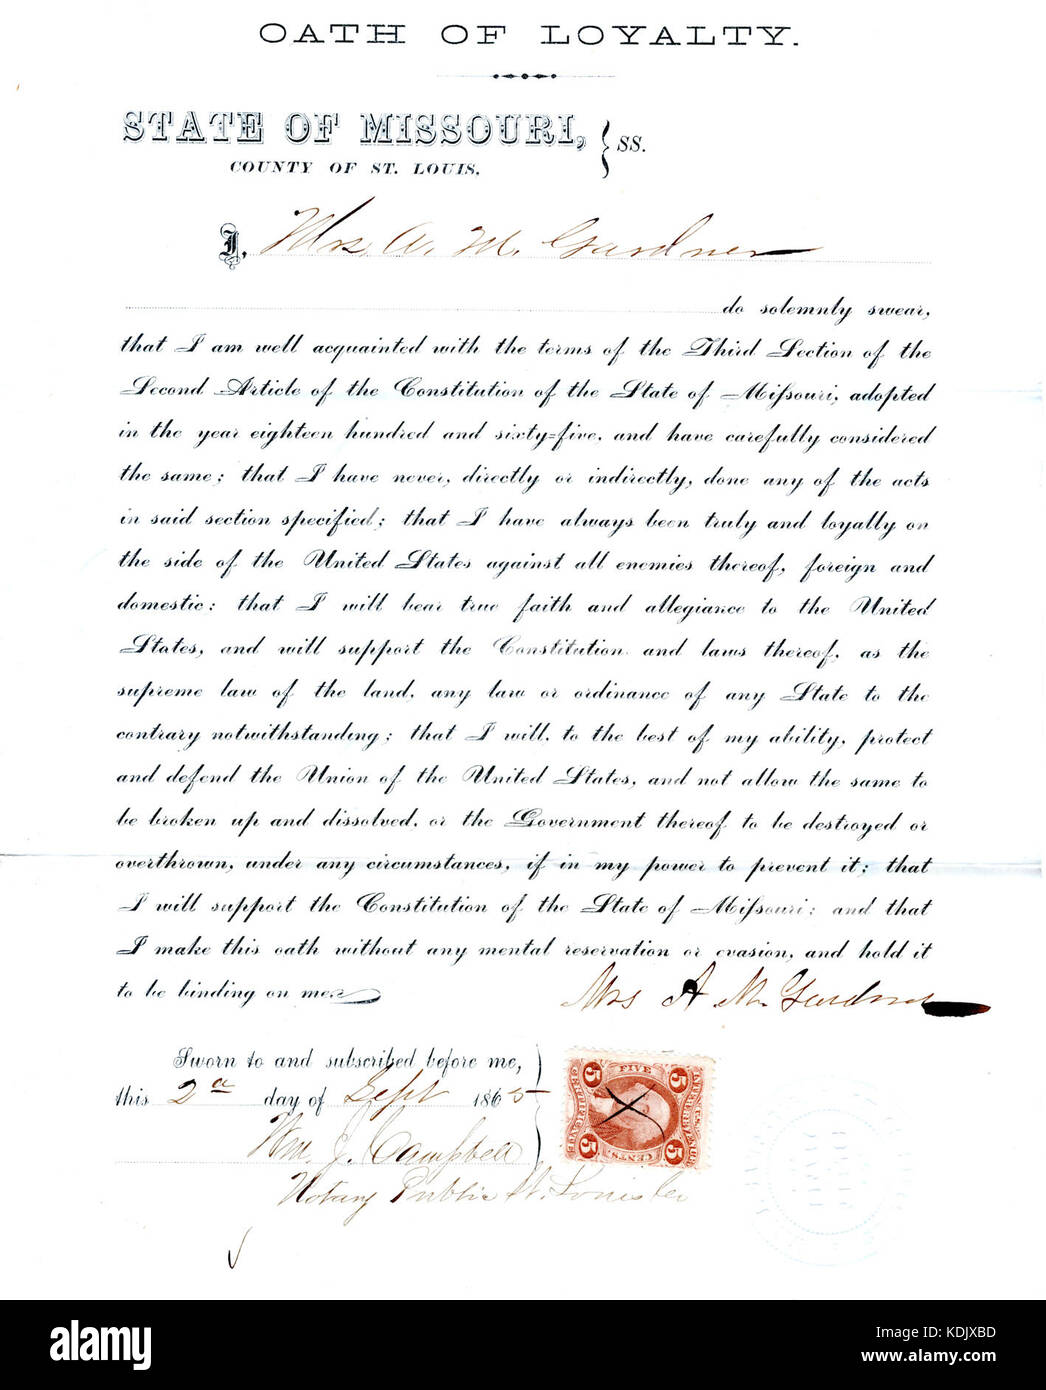 OATH OF LOYALTY.
STATE OF MISSOURI, } SS.
COUNTY OF ST. LOUIS.
I, Mrs. A. M. Gardner
do solemnly swear,
that I am well acquainted with the terms of the Third Section of the
Second Article of the Constitution of the State of Miſsouri, adopted
in the year eighteen hundred and sixty-five, and have carefully considered
the same; that I have never, directly or indirectly, done any of the acts
in said section specified; that I have always been truly and loyally on
the side of the United States against all enemies thereof, foreign and
domestic: that I will bear true faith and allegiance to the United
States, and will support the Constitution and laws thereof, as the
supreme law of the land, any law or ordinance of any State to the
contrary notwithstanding; that I will, to the best of my ability, protect
and defend the Union of the United States, and not allow the same to
be broken up and dissolved, or the Government thereof to be destroyed or
overthrown, under any circumstances, if in my power to prevent it; that
I will support the Constitution of the State of Miſsouri; and that
I make this oath without any mental reservation or evasion, and hold it
to be binding on me.
Mrs A M. Gardner
Sworn to and subscribed before me,
this 2d day of Sept 1865
Wm. J. Campbell
Notary Public St. Louis Co
FIVE
5 5
CERTIFICATE
U.S. INTER. REVENUE
X
5 5
CENTS
alamy
a
alamy
Image ID: KDJXBD
www.alamy.com